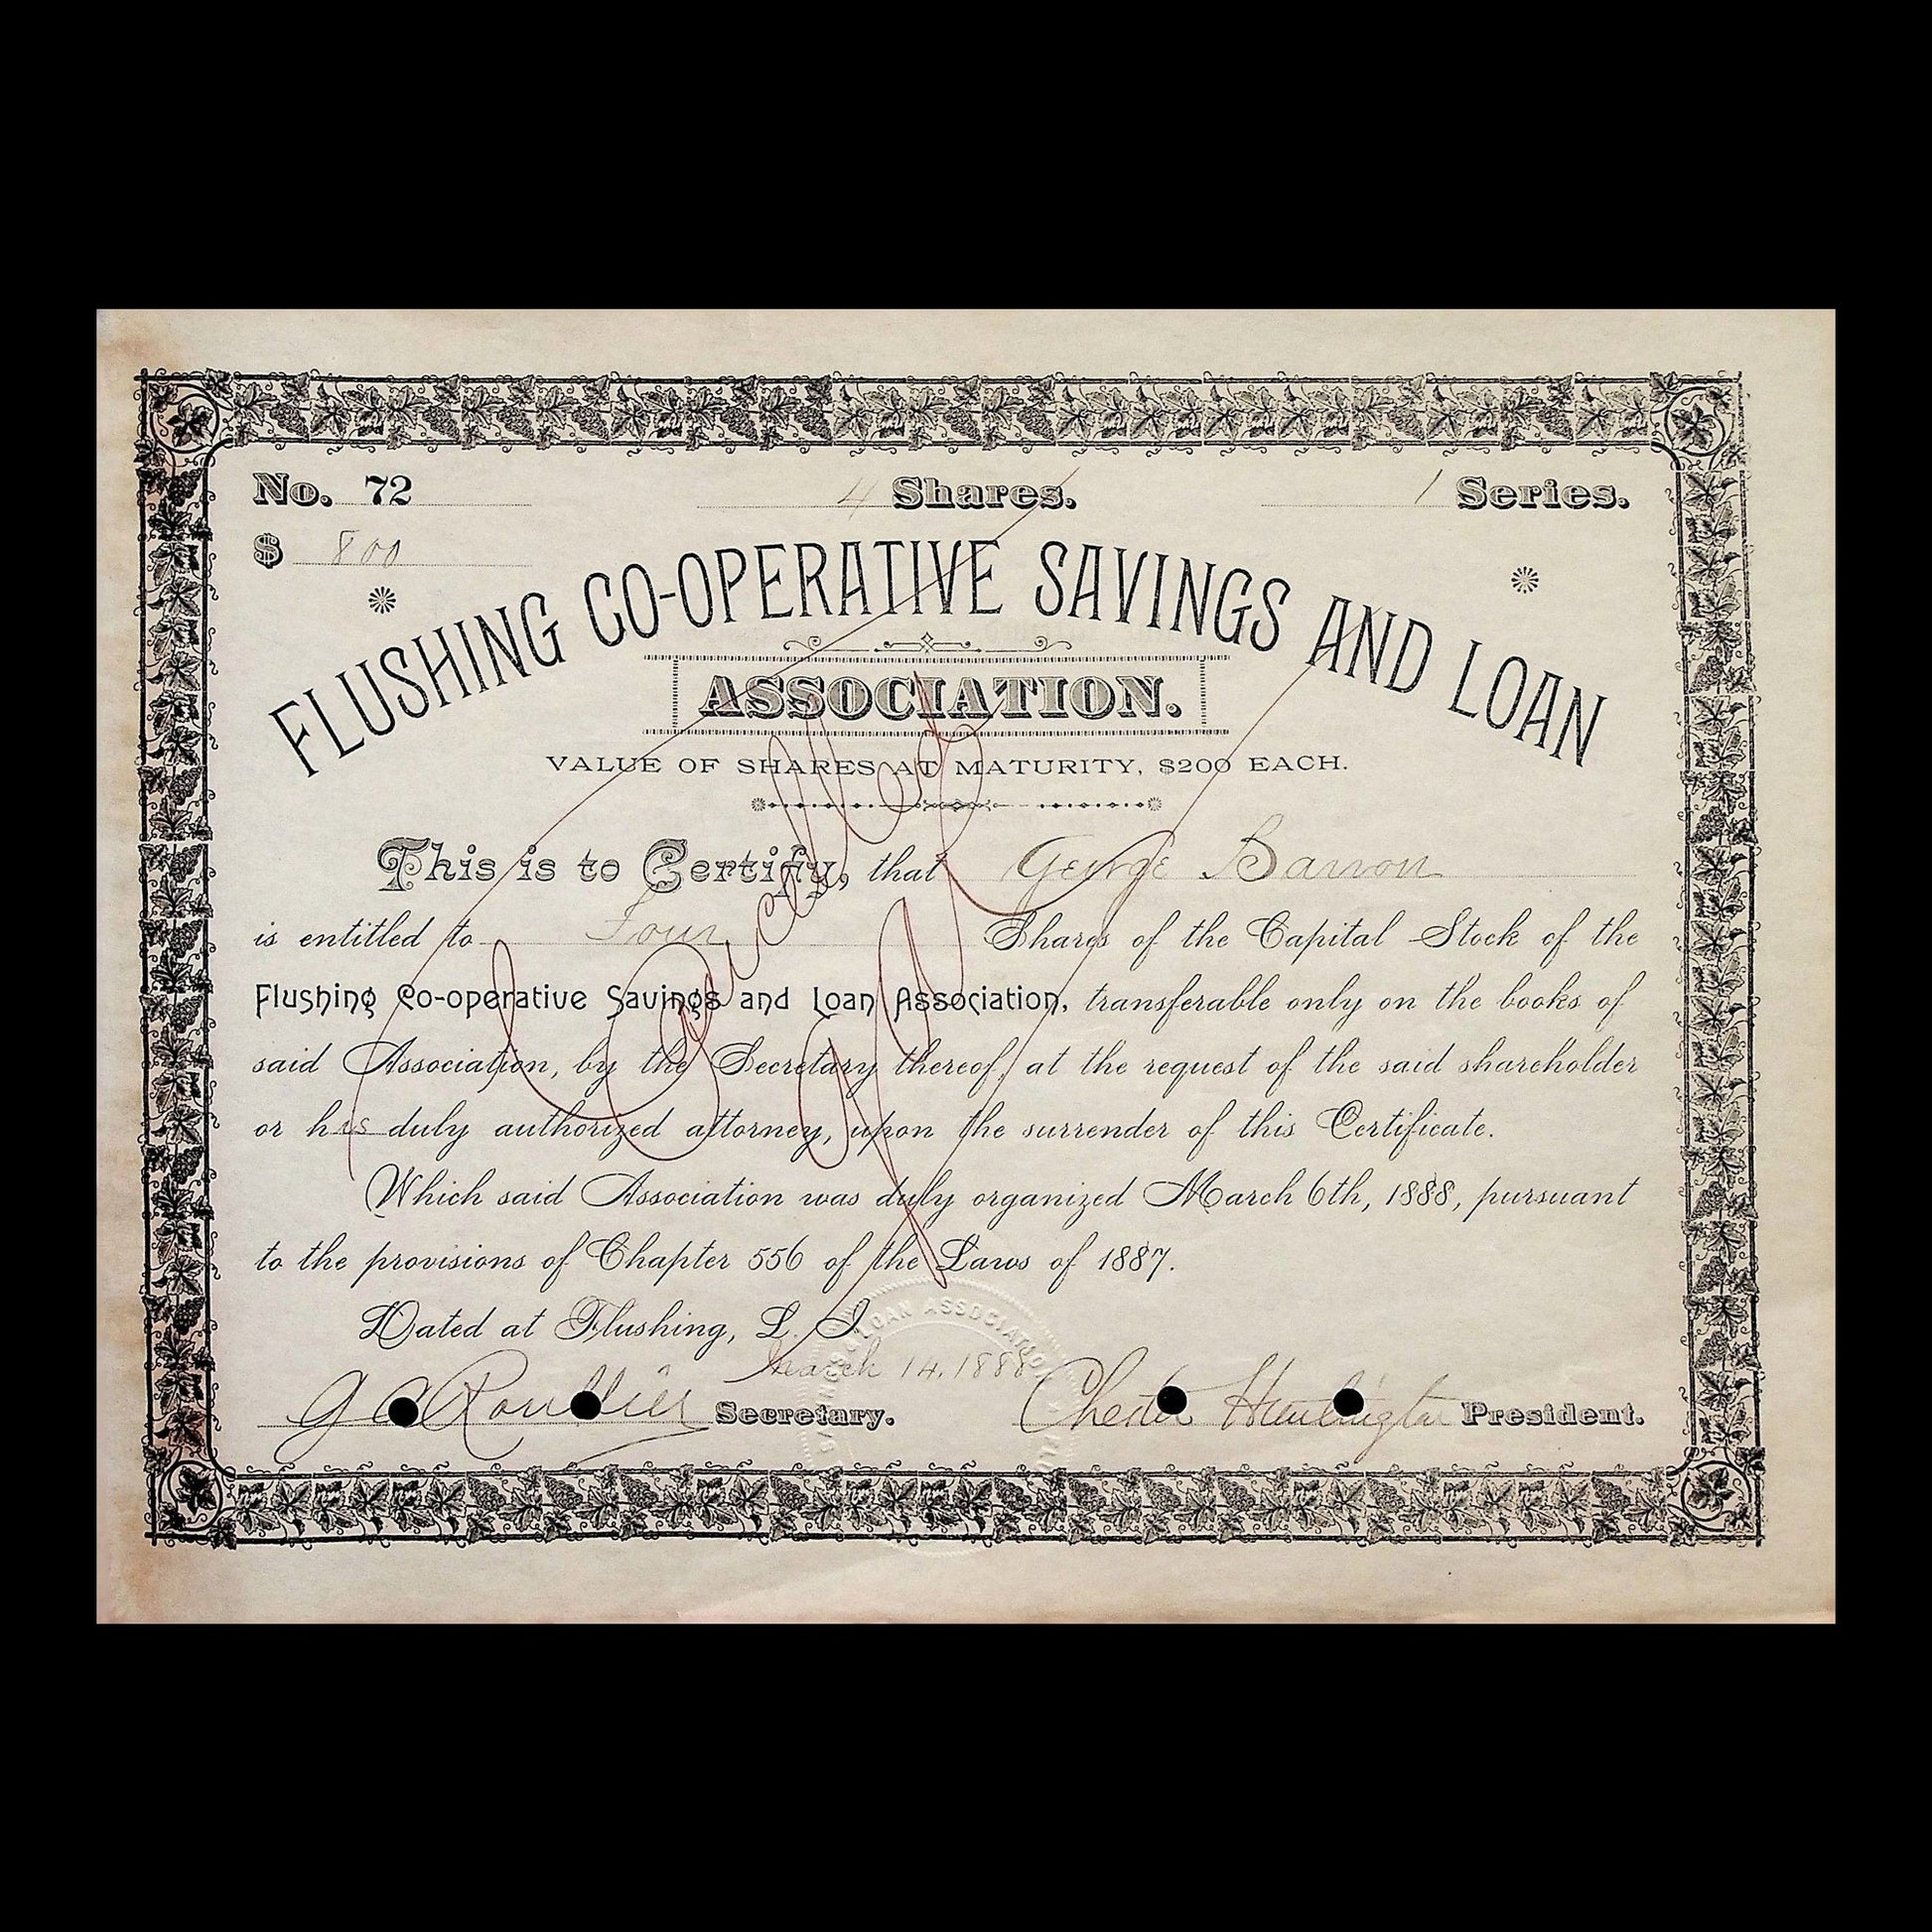 No. 72 4 Shares. 1 Series.
$ 800
FLUSHING CO-OPERATIVE SAVINGS AND LOAN
ASSOCIATION.
VALUE OF SHARES AT MATURITY, $200 EACH.
This is to Certify, that George Barron
is entitled to Four Shares of the Capital Stock of the
Flushing Co-operative Savings and Loan Association, transferable only on the books of
said Association, by the Secretary thereof, at the request of the said shareholder
or his duly authorized attorney, upon the surrender of this Certificate.
Cancelled
Which said Association was duly organized March 6th, 1888, pursuant
to the provisions of Chapter 556 of the Laws of 1887.
Dated at Flushing, L. I.
March 14, 1888
Secretary. Chester Huntington President.
LOAN ASSOCIATION